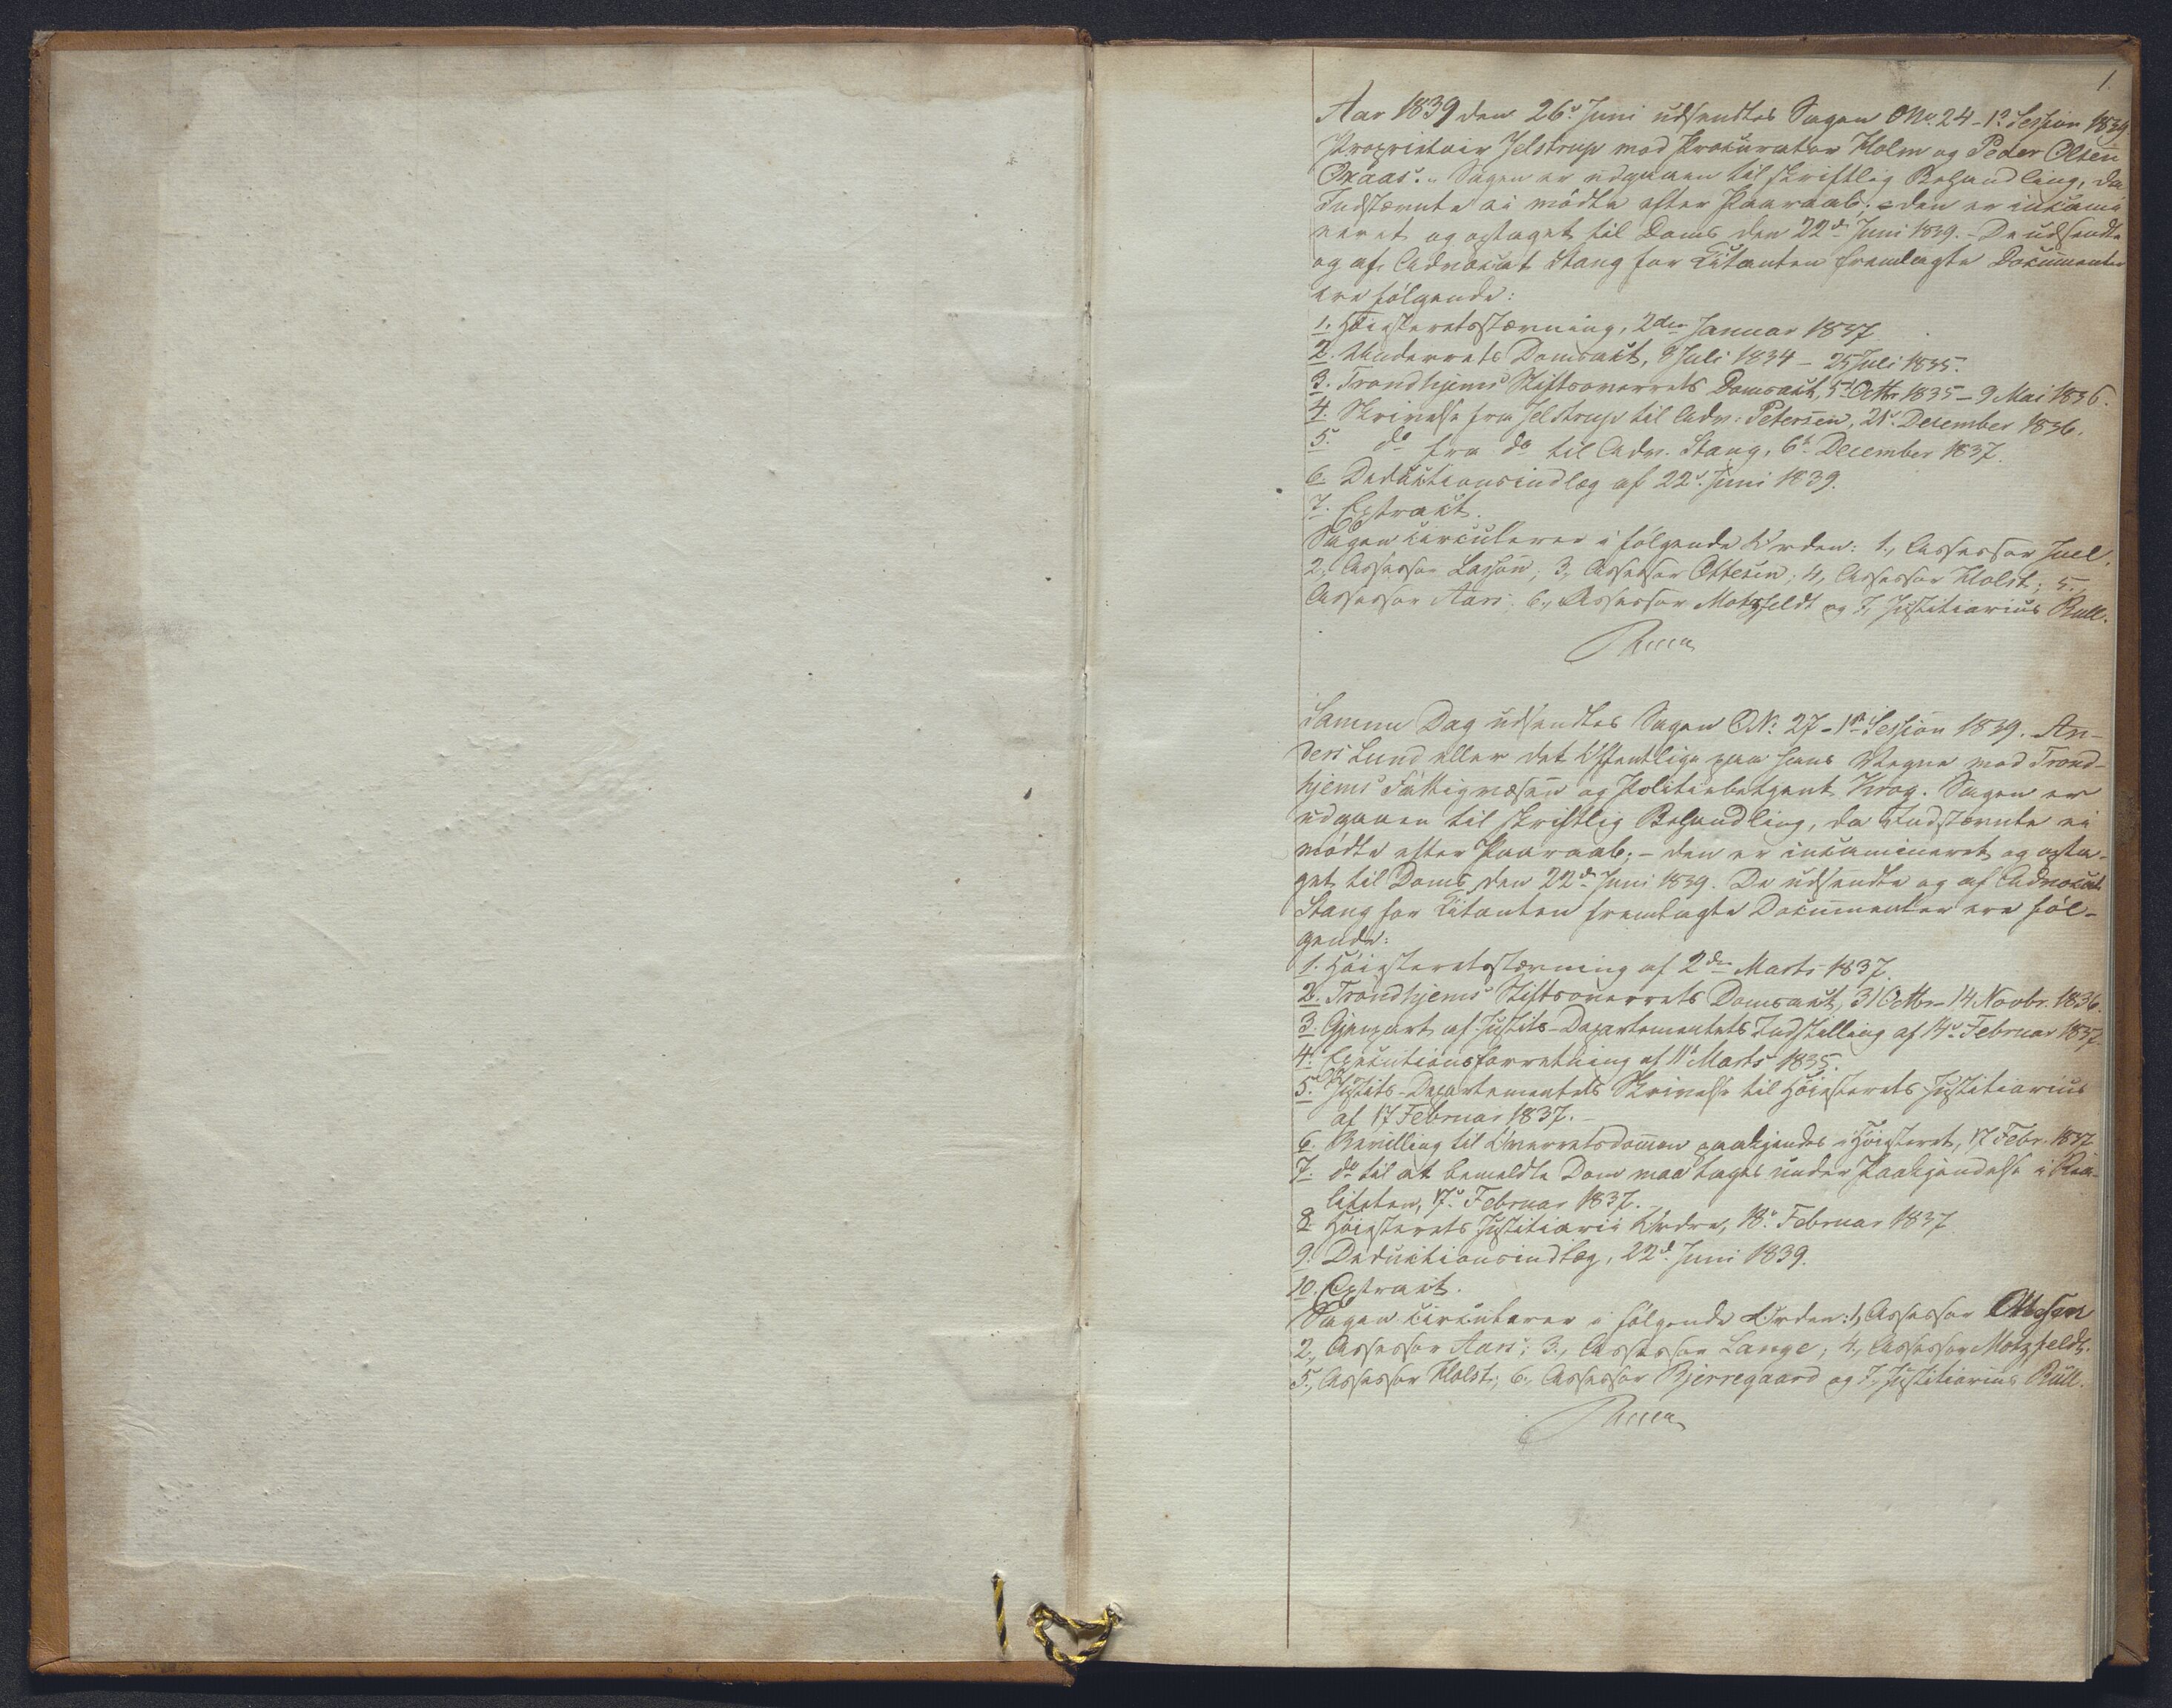 1.
Aar 1839 den 26de Juni udsendtes Sagen No 24 - 1ste Session 1839
Proprietair Jelstrup mod Procurator Holm og Peder Olsen
Oxaas. Sagen er udgaaen til skriftlig Behandling, da
Indstævnte ei mødte efter Paaraab; - den er incami-
neret og optaget til Doms den 22de Juni 1839. - De udsendte
og af Advocat Stang for Citanten fremlagte Documenter
ere følgende:
1. Høiesteretsstævning, 2den Januar 1837
2. Underrets Domsact, 9 Juli 1834 - 25 Juli 1835.
3. Trondhjems Stiftsoverrets Domsact, 5te Octbr 1835 - 9 Mai 1836.
4. Skrivelse fra Jelstrup til Adv. Petersen, 21de December 1836.
5. do fra do til Adv. Stang, 6te December 1837.
6. Deductionsindlæg af 22de Juni 1839.
7. Extract.
Sagen circulerer i følgende Orden: 1, Assessor Juel,
2, Assessor Lasson; 3, Assessor Ottesen; 4, Assessor Holst; 5,
Assessor Aars; 6, Assessor Motzfeldt og 7, Justitiarius Bull.
Samme Dag udsendtes Sagen No 27 - 1ste Session 1839. An-
ders Lund eller det Offentlige paa hans Vegne mod Trond-
hjems Fattigvæsen og Politiebetjent Krog. Sagen er
udgaaen til skriftlig Behandling, da Indstævnte ei
mødte efter Paaraab; - den er incamineret og opta-
get til Doms den 22de Juni 1839. De udsendte og af Advocat
Stang for Citanten fremlagte Documenter ere føl-
gende:
1. Høiesteretsstævning af 2den Marts 1837.
2. Trondhjems Stiftsoverrets Domsact, 31 Octbr - 14 Novbr. 1836.
3. Gjenpart af Justits-Departementets Indstilling af 14de Februar 1837.
4. Executionsforretning af 11te Marts 1835.
5. Justits-Departementets Skrivelse til Høiesterets Justitiarius
af 17 Februar 1837.
6. Bevilling til Overretsdommen paakjendes i Høiesteret, 17 Febr. 1837
7. do til at bemeldte Dom maa tages under Paakjendelse i Rea-
liteten, 17de Februar 1837.
8. Høiesterets Justitiarii Ordre, 18de Februar 1837
9. Deductionsindlæg, 22de Juni 1839.
10. Extract.
Sagen circulerer i følgende Orden: 1, Assessor Ottesen
2, Assessor Aars; 3, Assessor Lange; 4, Assessor Motzfeldt.
5, Assessor Holst; 6, Assessor Bjerregaard og 7, Justitiarius Bull.